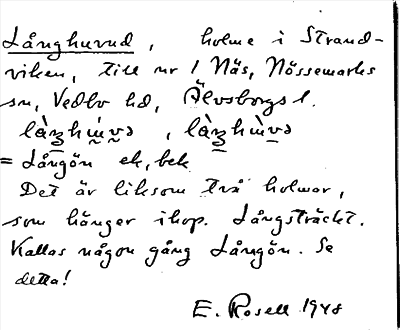 Långhuvud, holme i Strand-
viken, till nr 1 Näs, Nössemarks
sn, Vedbo hd, Älvsborgs l.
= Långön ek, bek
Det är liksom två holmar,
som hänger ihop. Långsträckt.
Kallas någon gång Långön. Se
detta!
E. Rosell 1948